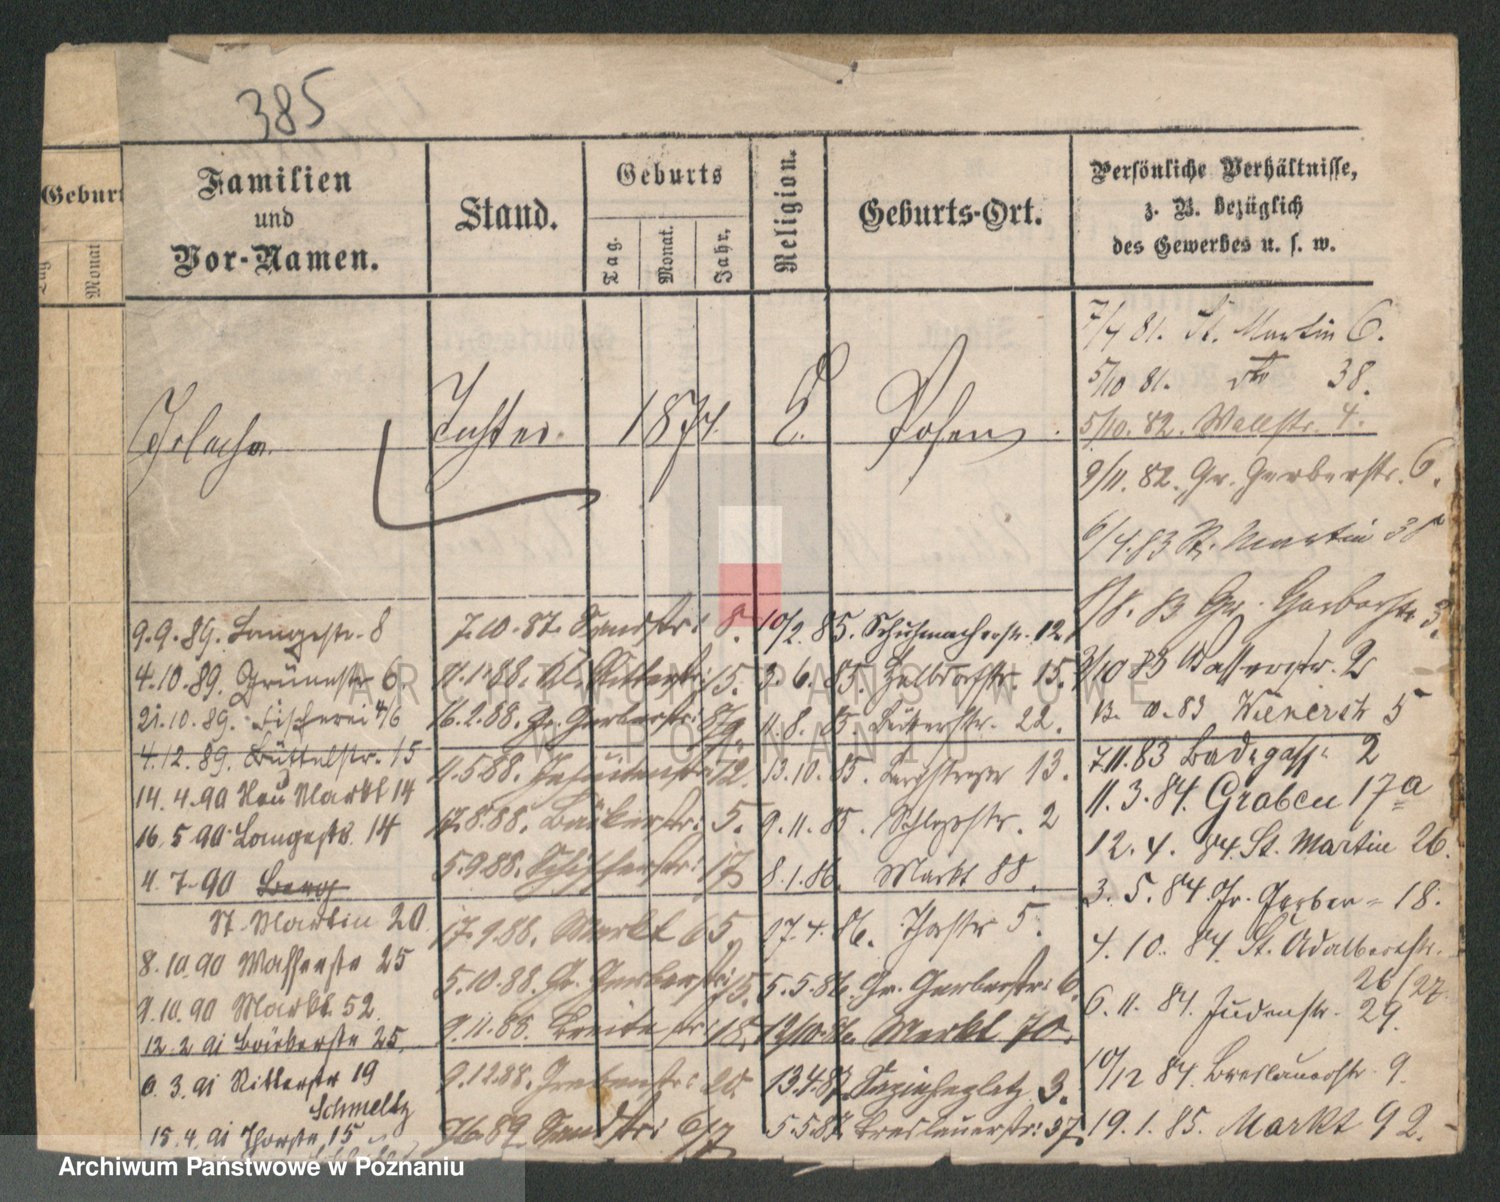 385
Geburt
Tag
Monat
Familien
und
Vor-Namen.
Stand.
Geburts
Tag.
Monat.
Jahr,
Religion.
Geburts-Ort.
Persönliche Verhältnisse,
z. B. bezüglich
des Gewerbes u. s. w.
Tochter. 1874. E. Posen.
7/4 81. St. Martin 6.
5/10 81. dto 38.
5/10. 82. Wallstr. 4.
9/11. 82. Gr. Gerberstr. 6.
6/4. 83 St. Martin 38
8/8. 83 Gr. Gerberstr. 3.
3/10 83 Wasserstr. 2
13. 10. 83 Wienerstr 5
7.11.83 Badegasse 2
11. 3. 84. Graben 17a
12. 4. 84. St. Martin 26.
3. 5. 84 Gr. Gerber = 18.
4. 10. 84. St. Adalbertstr.
26/27.
6. 11. 84. Judenstr. 29.
10/12 84. Breslauerstr. 9.
19. 1. 85. Markt 92.
10/2. 85. Schuhmacherstr. 12.
3. 6. 85. Halbdorfstr. 15.
11. 8. 85 Büttelstr. 22.
13. 10. 85. Bergstrasse 13.
9. 11. 85. Schlossstr. 2
8. 1. 86. Markt 88.
27. 4. 86. Thorstr 5.
5. 5. 86. Gr. Gerberstr: 6.
12/10. 86. Markt 70.
13.4.87. Sapiehaplatz 3.
5.5.87. Breslauerstr: 37.
7.10.87. Sandstr: 8.
11.1.88. Kl. Ritterstr: 15.
16.2.88. Gr. Gerberstr: 8/9.
11.5.88. Jesuitenstr: 12.
17.8.88. Bäckerstr: 5.
5.9.88. Schifferstr: 17
17.9.88. Markt 65.
5.10.88. Gr. Gerberstr: 15.
9.11.88. Breitestr: 18.
9.12.88. Grabenstr:
Sandstr: 6/7
9.9.89. Langestr. 8
4.10.89. Grünestr 6.
21.10.89. Fischerei 4/6
4.12.89. Büttelstr. 15
14.4.90 Neu Markt 14
16.5.90 Langestr. 14
4.7.90 Berg
St. Martin 20
8.10.90 Wasserstr 25
9.10.90 Markt 52.
12.2.91 Bäckerstr 25.
6.3.91 Ritterstr 19
Schmeltz
15.4.91 Thorstr 15
ARCHIWUM PAŃSTWOWE
W POZNANIU
Archiwum Państwowe w Poznaniu